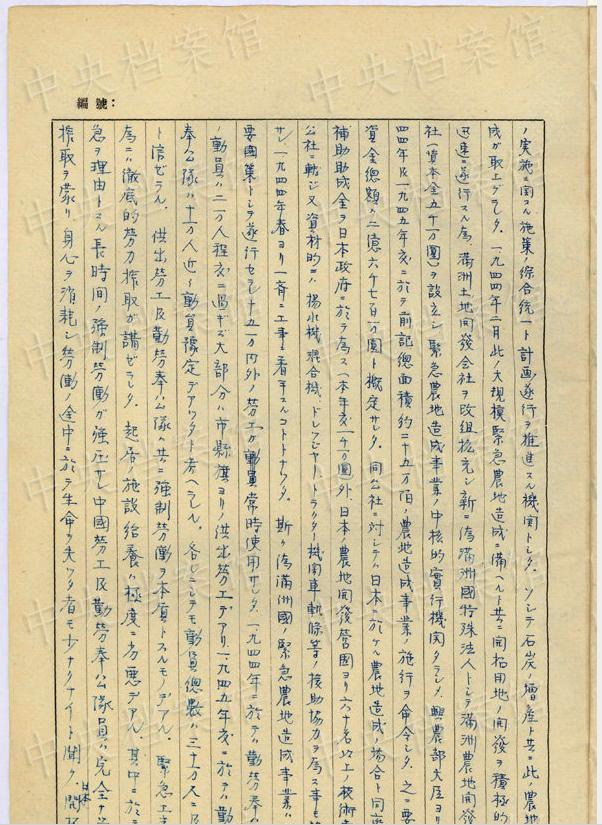 中央档案馆
編號：
ノ実施ニ関スル施策ノ綜合統一ト計画遂行ヲ推進スル機関トシタ。ソシテ石炭ノ増産ト共ニ此ノ農地
成ガ取上ゲラレタ。一九四四年二月此ノ大規模緊急農地造成ニ備ヘルト共ニ開拓用地ノ開發ヲ積極的
迅速ニ遂行スル為、満洲土地開發会社ヲ改組拡充シ新ニ偽満洲國特殊法人トシテ満洲農地開發
社（資本金五千万圓）ヲ設立シ緊急農地造成事業ノ中核的實行機関タラシメ、興農部大臣ヨリ
四四年及一九四五年度ニ於テ前記總面積約二十五万陌ノ農地造成事業ノ施行ヲ命令シタ。之ニ要
資金總額ハ二億六千七百万圓ト概定サレタ。同公社ニ対シテハ日本ニ於ケル農地造成ノ場合ト同
補助助成金ヲ日本政府ニ於テ為ス（本年度一千万圓）外、日本ノ農地開發營團ヨリ六十名以上ノ技術
公社ニ転ジ又資材的ニハ揚水機、混合機、ドレッヂャー、トラクター、機関車軌條等ノ援助協力ヲ為ス事
サレ一九四四年春ヨリ一斉ニ工事ニ着手スルコトトナツタ。斯ク偽満洲國ノ緊急農地造成事業ハ
要國策トシテ遂行セラレ十五万内外ノ労工ガ動員常時使用サレタ。一九四四年ニ於テハ勤労奉
ノ動員ハ二万人程度ニ過ギズ大部分ハ市縣旗ヨリノ供出労工デアリ一九四五年度ニ於テハ勤
奉公隊ハ十万人近ク動員豫定デアツタト考ヘラレル。各レニシテモ動員總数ハ三十万人ニ及
ト信ゼラル。供出労工及勤労奉公隊ハ共ニ強制労働ヲ本質トスルモノデアル。緊急工
為ニハ徹底的労力搾取ガ講ゼラレタ。起居ノ施設給養ハ極度ニ劣悪デアル。其中ニ於テ
急ヲ理由トスル長時間ノ強制労働ガ強圧サレ中國労工及勤労奉公隊員ハ完全
搾取ヲ蒙リ、身心ヲ消耗シ労働ノ途中ニ於テ生命ヲ失ツタ者モ少ナクナイト聞ク。
日本